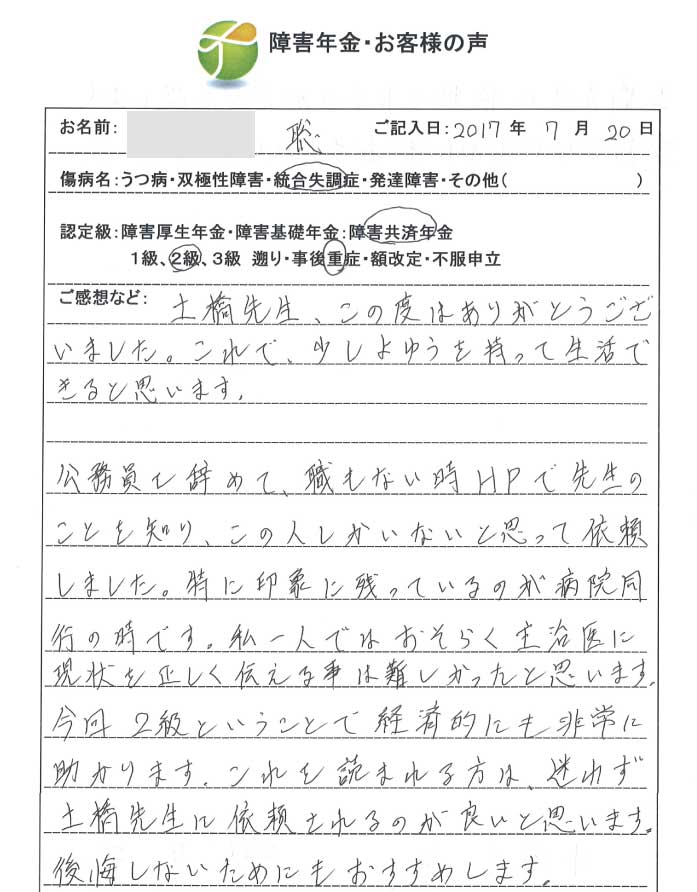 障害年金・お客様の声
お名前: 聡 ご記入日: 2017 年 7 月 20 日
傷病名:うつ病・双極性障害・統合失調症・発達障害・その他( )
認定級:障害厚生年金・障害基礎年金:障害共済年金
1級、2級、3級 遡り・事後重症・額改定・不服申立
ご感想など: 土橋先生、この度はありがとうござ
いました。これで、少しよゆうを持って生活で
きると思います。
公務員を辞めて、職もない時HPで先生の
ことを知り、この人しかいないと思って依頼
しました。特に印象に残っているのが病院同
行の時です。私一人ではおそらく主治医に
現状を正しく伝える事は難しかったと思います。
今回2級ということで経済的にも非常に
助かります。これを読まれる方は、迷わず
土橋先生に依頼されるのが良いと思います。
後悔しないためにもおすすめします。